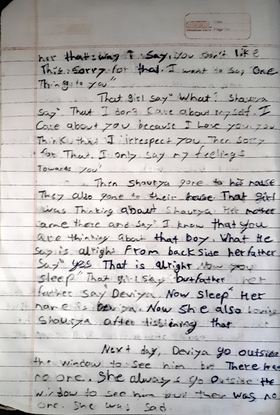 her that way I say, you don't like
This. sorry for that. I want to say One
Thing to you"
That girl say" What? Shourya
Say" That I don't care about myself. I
Care about you because I Love you you
Think that I irrespect you Then sorry
for That. I only say my feelings
Towards you!
Then Shourya gone to his house
They also gone to their house That girl
was Thinking about Shourya Her mother
came there and say" I know that you
are thinking about that boy. What He
say is alright From backside her father
say" yes That is alright Now you
sleep" That girl say but father
father say Deviya. Now sleep" Her
name is Deviya. Now she also loving
Shourya after listening that
Next day, Deviya go outside
the window to see him but There has
no one. She always go outside the
window to see him but There was no
one. She was sad